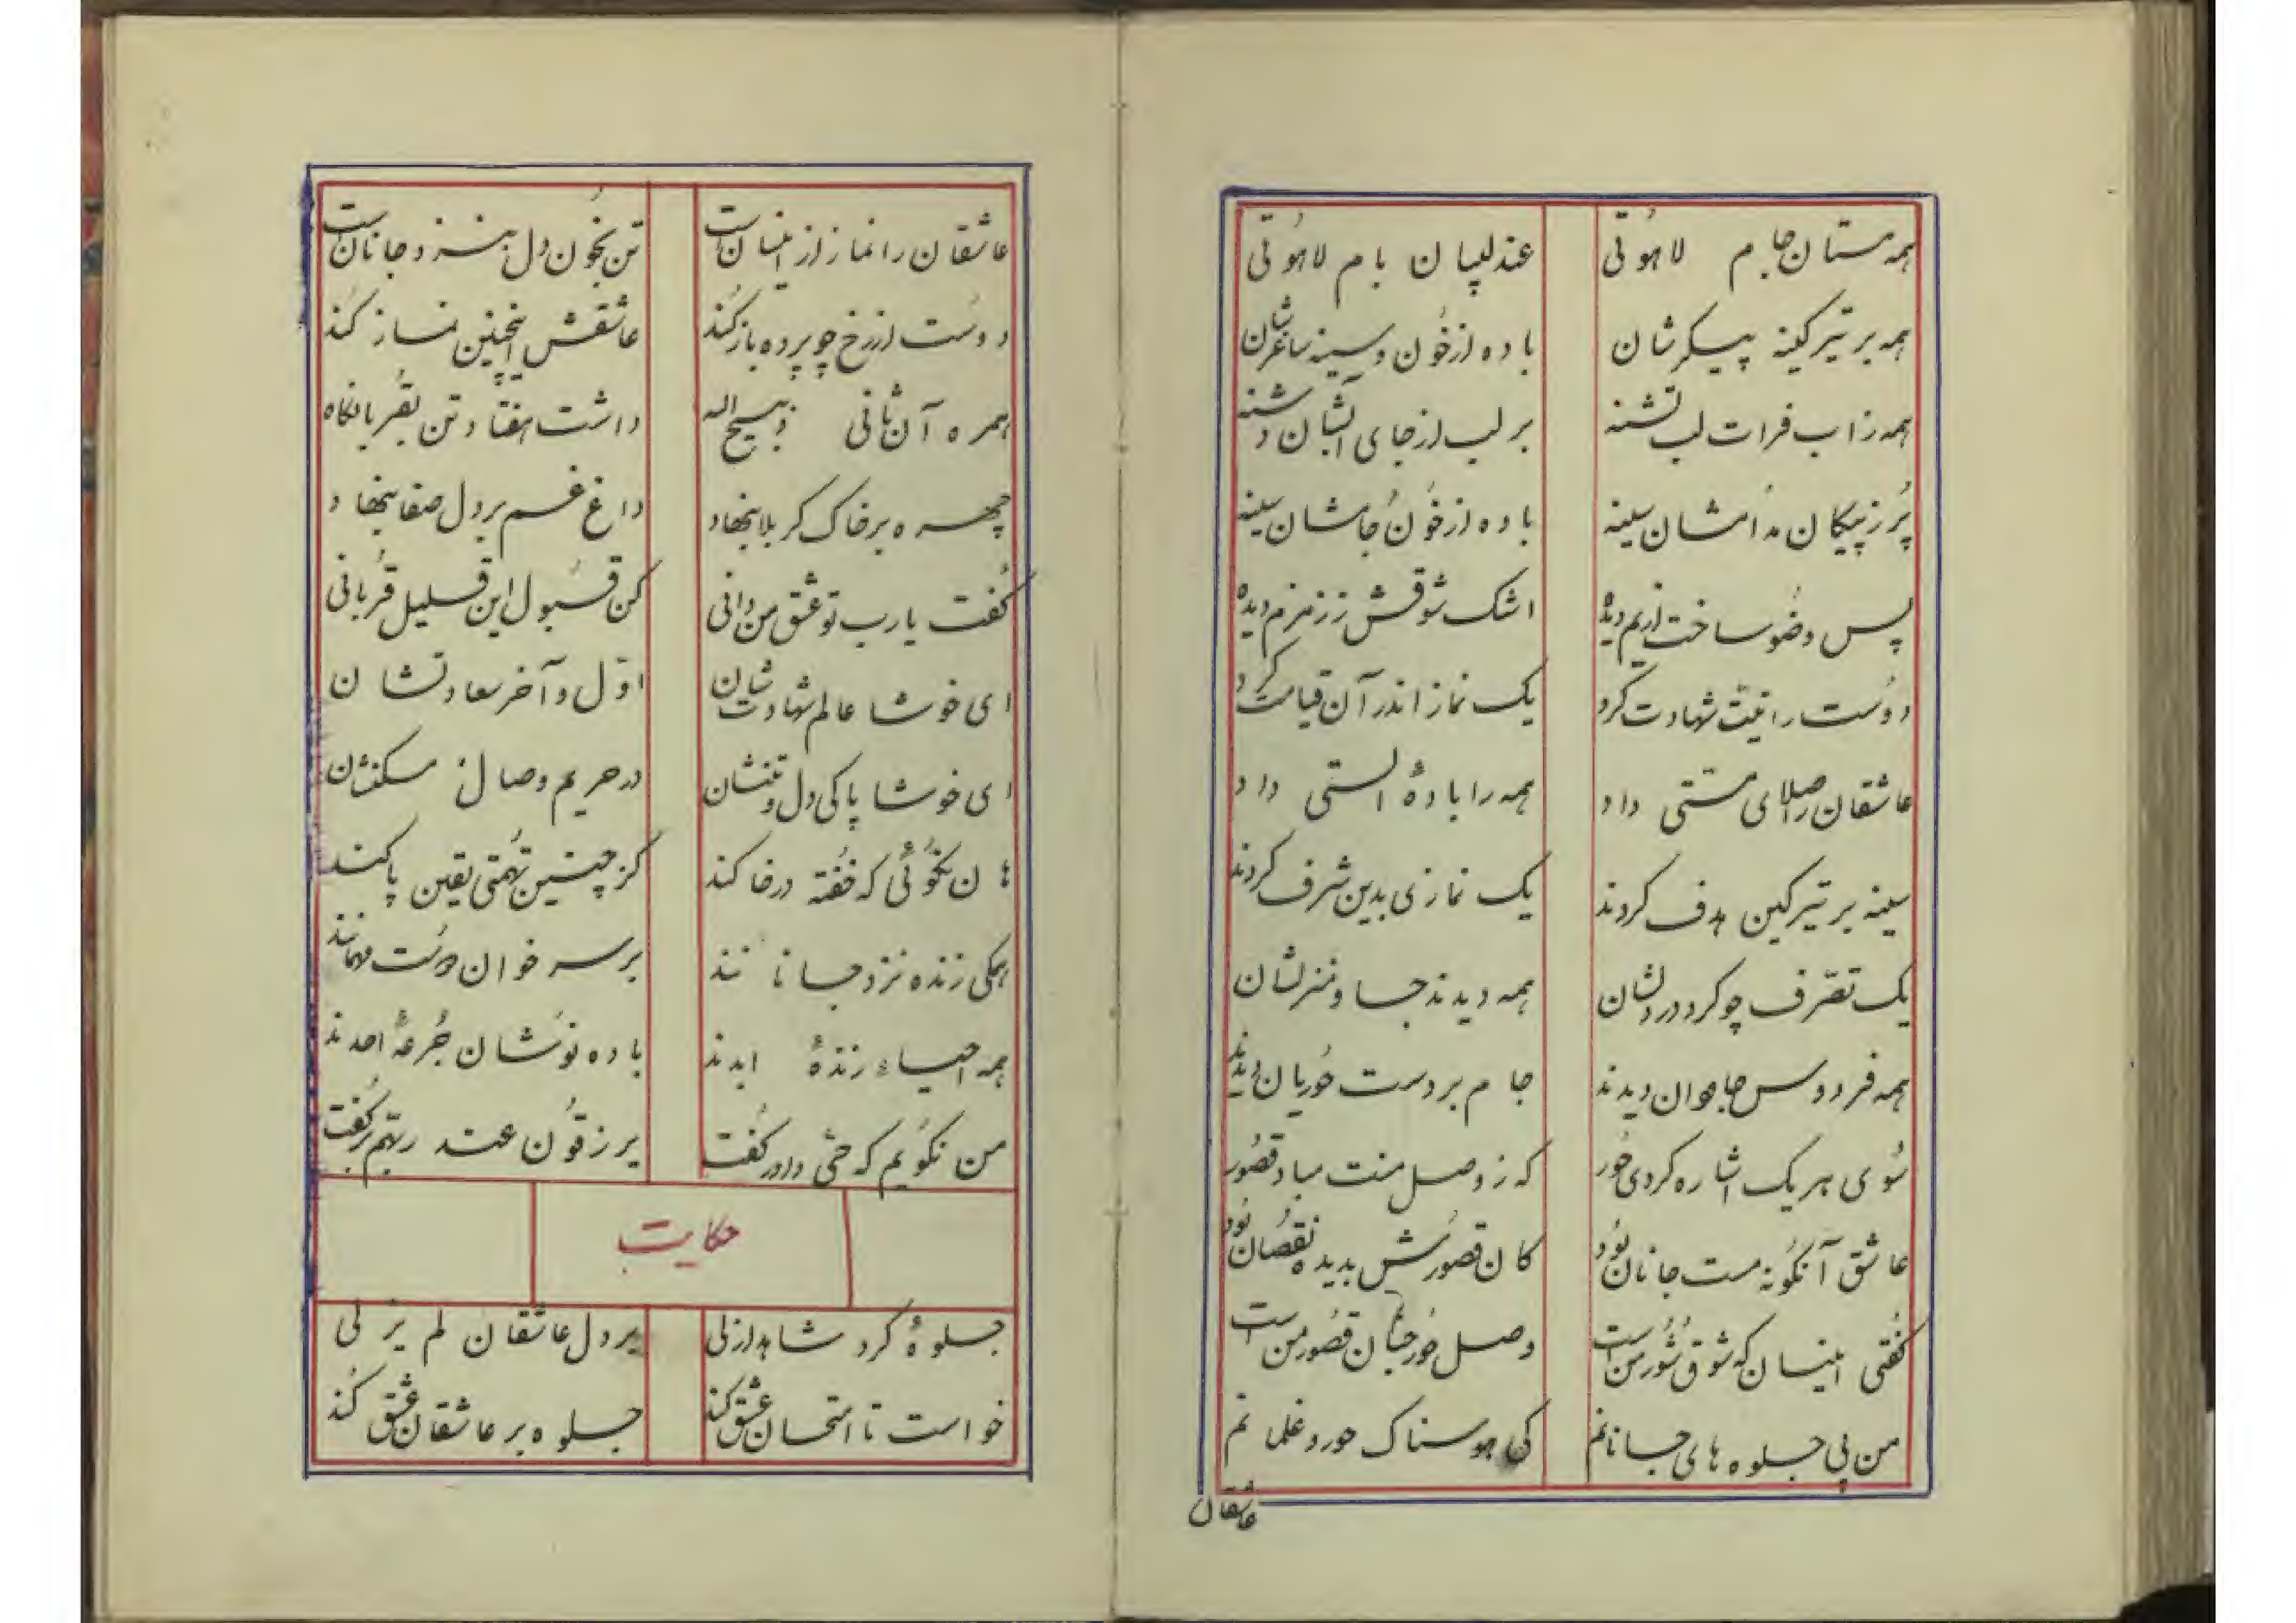 همه مستان جام لاهوتی	عندلیبان بام لاهوتی
همه بر تیر کینه پیکرشان	باده از خون و سینه ساغرشان
همه ز آب فرات لب تشنه	بر لب از جای آبشان دشنه
پر ز پیکان مدامشان سینه	باده از خون جامشان سینه
پس وضو ساخت از یم دیده	اشک شوقش ز زمزم دیده
دوست را نیت شهادت کرد	یک نماز اندر آن قیامت کرد
عاشقان را صلای مستی داد	همه را بادهٔ الستی داد
سینه بر تیر کین هدف کردند	یک نمازی بدین شرف کردند
یک تصرف چو کرد در دلشان	همه دیدند جا و منزلشان
همه فردوس جاودان دیدند	جام بر دست حوریان دیدند
سوی هر یک اشاره کردی حور	که ز وصل منت مباد قصور
عاشق آنگونه مست جانان بود	کان قصورش بدیده نقصان بود
گفتی اینسان که شوق شور من است	وصل حور جنان قصور من است
من پی جلوه های جانانم	کی هوسناک حور و غلمانم
عاشقان
عاشقان را نماز از اینسان است	تن بخون دل بنزد جانان است
دوست از رخ چو پرده باز کند	عاشقش اینچنین نماز کند
همره آن ثانی ذبیح الله	داشت هفتاد تن بقربانگاه
چهره بر خاک کربلا بنهاد	داغ غم بر دل صفا بنهاد
گفت یا رب تو عشق من دانی	کن قبول این قلیل قربانی
ای خوشا عالم شهادتشان	اول و آخر سعادتشان
ای خوشا پاکی دل و تنشان	در حریم وصال مسکنشان
هان نگوئی که خفته در خاکند	کز چنین تهمتی یقین پاکند
همگی زنده نزد جانانند	بر سر خوان دوست مهمانند
همه احیاء زندهٔ ابدند	باده نوشان جرعهٔ احدند
من نگویم که حی داور گفت	یرزقون عند ربهم برگفت
حکایت
جلوهٔ کرد شاهد ازلی	بر دل عاشقان لم یزلی
خواست تا امتحان عشق کند	جلوه بر عاشقان عشق کند